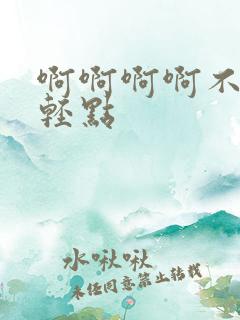 啊啊啊啊不
轻點
水啾啾
未经同意禁止转载